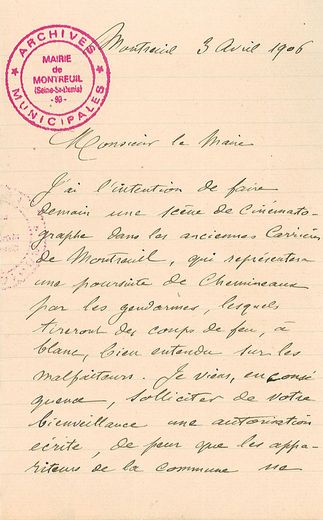 ARCHIVES
MAIRIE
de
MONTREUIL
(Seine-St-Denis)
- 93 -
MUNICIPALES
Montreuil 3 Avril 1906
Monsieur le Maire
J'ai l'intention de faire
demain une scène de Cinémato-
graphe dans les anciennes Carrières
de Montreuil, qui représentera
une poursuite de Chemineaux
par les gendarmes, lesquels
tireront des coups de feu, à
blanc, bien entendu sur les
malfaiteurs. Je viens, en consé
quence, solliciter de votre
bienveillance une autorisation
écrite, de peur que les appa-
riteurs de la commune ne